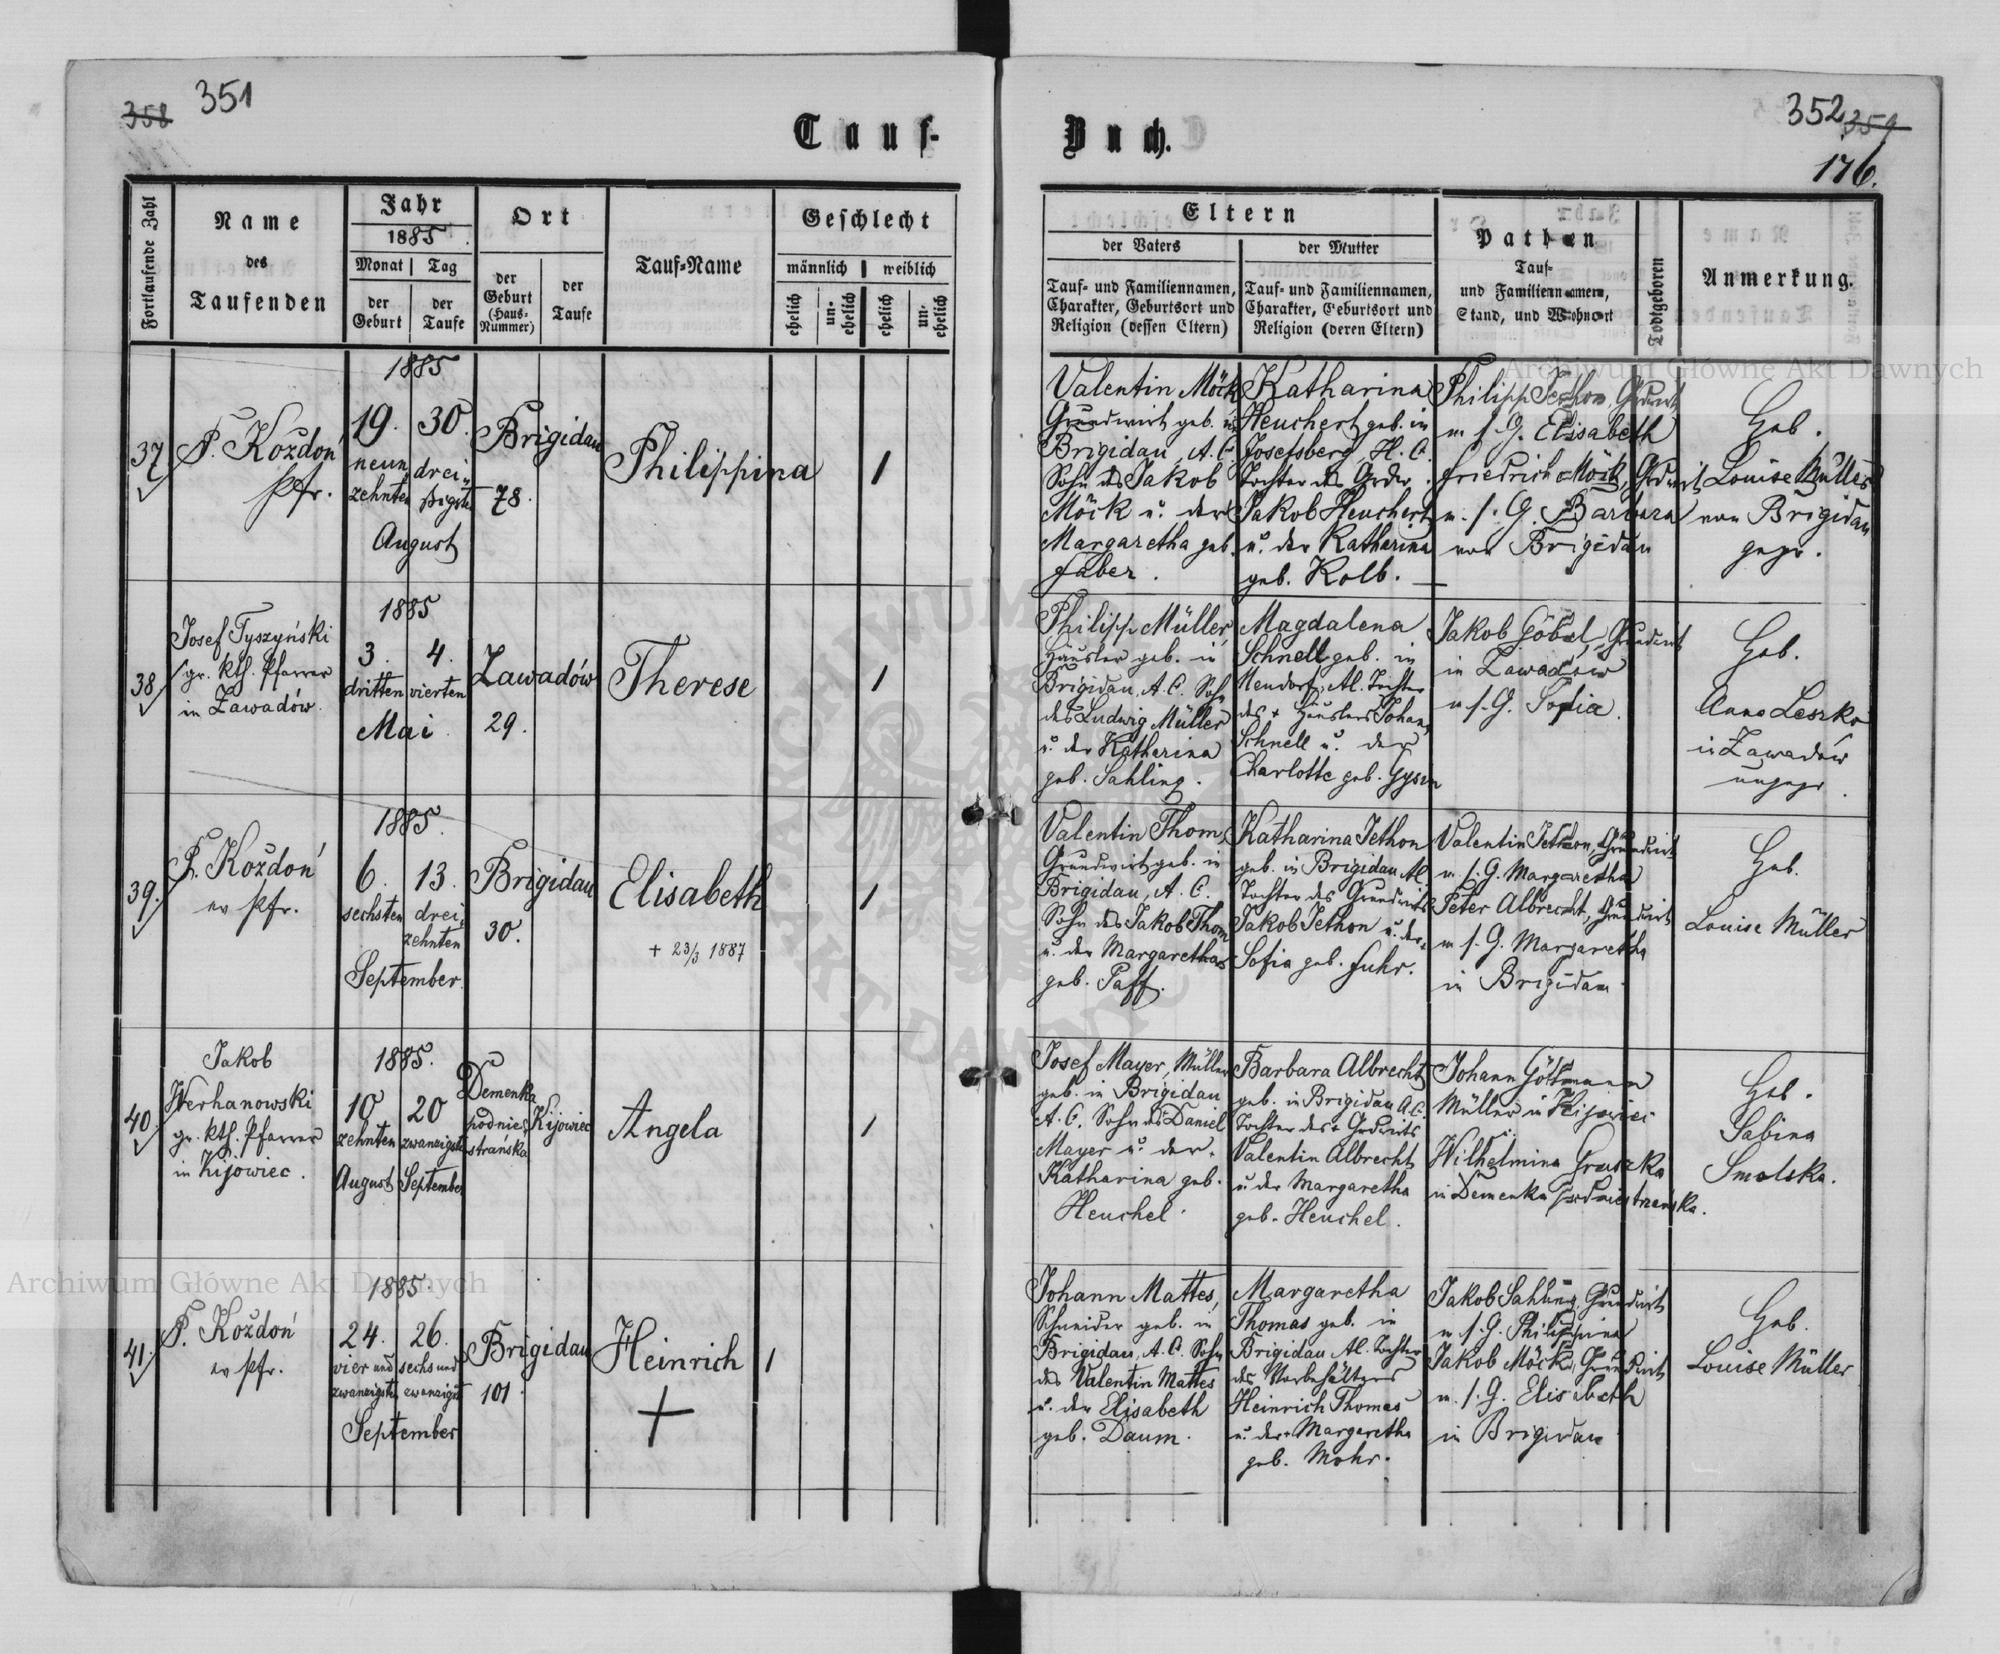 358 351
Tauf-
Fortlaufende Zahl
Name
des
Taufenden
Jahr
1885.
Monat
Tag
der
Geburt
der
Taufe
Ort
der
Geburt
(Haus-
Nummer)
der
Taufe
Tauf-Name
Geschlecht
männlich
weiblich
ehelich
un-
ehelich
ehelich
un-
ehelich
37
P. Kożdoń
Pfr.
1885
19. 30.
neun
zehnten
drei
ßigsten
August
Brigidau
78.
Philippina
1
38
Josef Tyszyński
gr. kth. Pfarrer
in Zawadów.
1885
3. 4.
dritten vierten
Mai
Zawadów
29.
Therese
1
39.
P. Kożdoń
ev Pfr.
1885.
6. 13.
sechsten drei
zehnten
September
Brigidau
30.
Elisabeth
+ 23/3 1887
1
40
Jakob
Werhanowski
gr. kth. Pfarrer
in Kijowiec.
1885.
10 20
zehnten zwanzigst
August September
Demenka
podnies
strańska
Kijowiec
Angela
1
41.
P. Kożdoń
ev Pfr.
1885.
24. 26.
vier und sechs und
zwanzigst. zwanzigst
September
Brigidau
101.
Heinrich
+
1
352 359
176.
Buch.
Eltern
der Vaters
Tauf- und Familiennamen,
Charakter, Geburtsort und
Religion (dessen Eltern)
der Mutter
Tauf- und Familiennamen,
Charakter, Geburtsort und
Religion (deren Eltern)
Pathen
Tauf-
und Familiennamen,
Stand, und Wohnort
Todtgeboren
Anmerkung.
Valentin Möck
Grundwirt geb. in
Brigidau, A. C.
Sohn des Jakob
Möck u. der
Margaretha geb.
Faber.
Katharina
Heuchert geb. in
Josefsberg, H. C.
Tochter des Grdw.
Jakob Heuchert
u. der Katharina
geb. Kolb.
Philipp Jethon, Grdwirt
u s. G. Elisabeth
Friedrich Möck, Grdwirt
u. s. G. Barbara
von Brigidau
Heb.
Louise Müller
von Brigidau
gepr.
Philipp Müller,
Häusler geb. in
Brigidau, A. C. Sohn
des Ludwig Müller
u. der Katharina
geb. Sahling.
Magdalena
Schnell geb. in
Neudorf, AC. Tochter
des + Häuslers Johann
Schnell u. der
Charlotte geb. Gysin
Jakob Göbel, Grundwirt
in Zawadów
u s. G. Sofia.
Heb.
Anna Leszko
in Zawadów
ungepr.
Valentin Thom,
Grundwirt geb. in
Brigidau, A. C.
Sohn des Jakob Thom
u. der Margaretha
geb. Paff.
Katharina Jethon
geb. in Brigidau AC.
Tochter des Grundwirts
Jakob Jethon u. der
Sofia geb. Fuhr.
Valentin Jethon, Grundwirt
u. s. G. Margaretha
Peter Albrecht, Grundwirt
u s. G. Margaretha
in Brigidau
Heb.
Louise Müller
Josef Mayer, Müller
geb. in Brigidau
A. C. Sohn des Daniel
Mayer u. der
Katharina geb.
Heuchel.
Barbara Albrecht
geb. in Brigidau A. C.
Tochter des + Grdwirts
Valentin Albrecht
u der Margaretha
geb. Heuchel.
Johann Göttmann
Müller in Kijowiec
Wilhelmina Gruszka
in Demenka podniestrzanska.
Heb.
Sabina
Smolska.
Johann Mattes,
Schneider geb. in
Brigidau, A. C. Sohn
des Valentin Mattes
u. der Elisabeth
geb. Daum.
Margaretha
Thomas geb. in
Brigidau AC. Tochter
des Vorbehälters
Heinrich Thomas
u. der + Margaretha
geb. Mohr.
Jakob Sahling, Grundwirt
u s. G. Philippina
Jakob Möck, Grundwirt
u. s. G. Elisabeth
in Brigidau
Heb.
Louise Müller
Archiwum Główne Akt Dawnych
Archiwum Główne Akt Dawnych
ARCHIWUM
AKT DAWNYCH